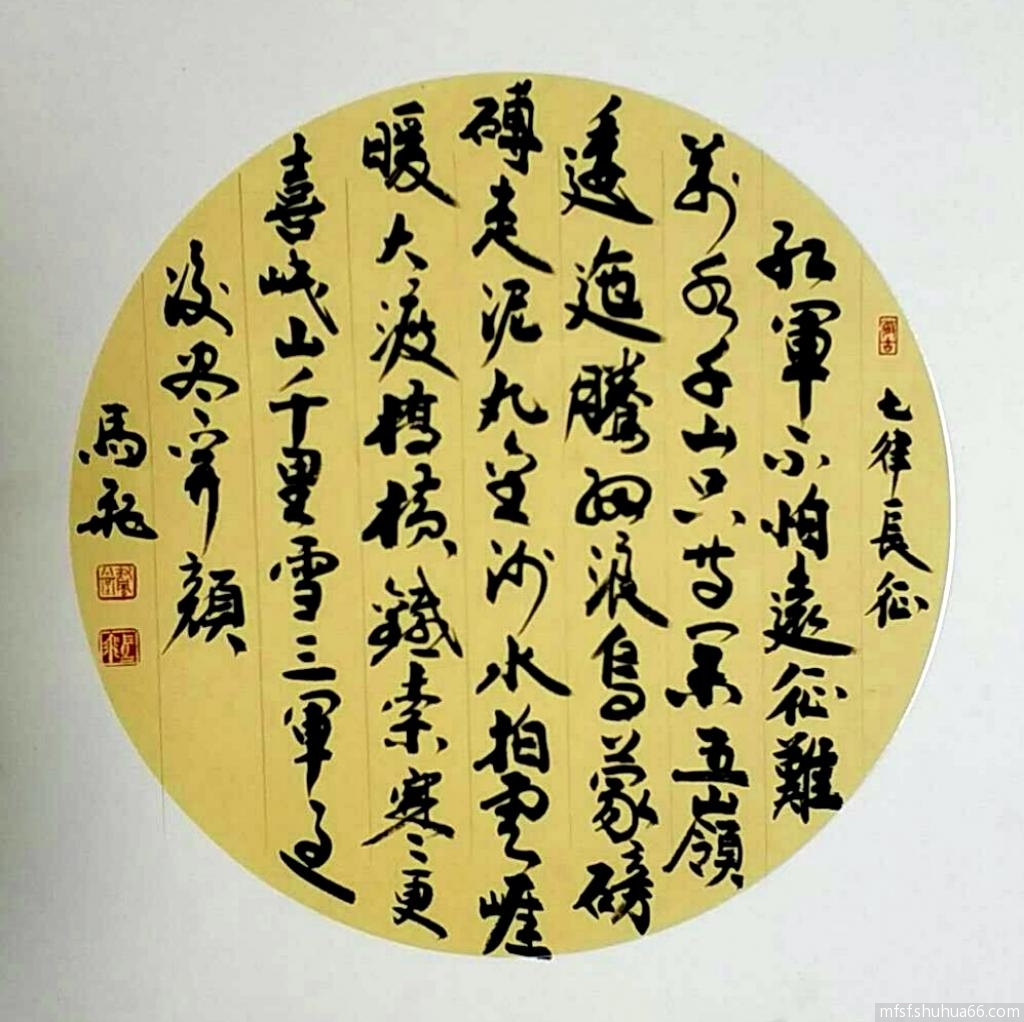 七律長征
紅軍不怕遠征難
萬水千山只等閑五嶺
逶迤騰細浪烏蒙磅
礴走泥丸金沙水拍雲崖
暖大渡橋橫鐵索寒更
喜岷山千里雪三軍過
後盡開顏
馬飛
mfsf.shuhua66.com